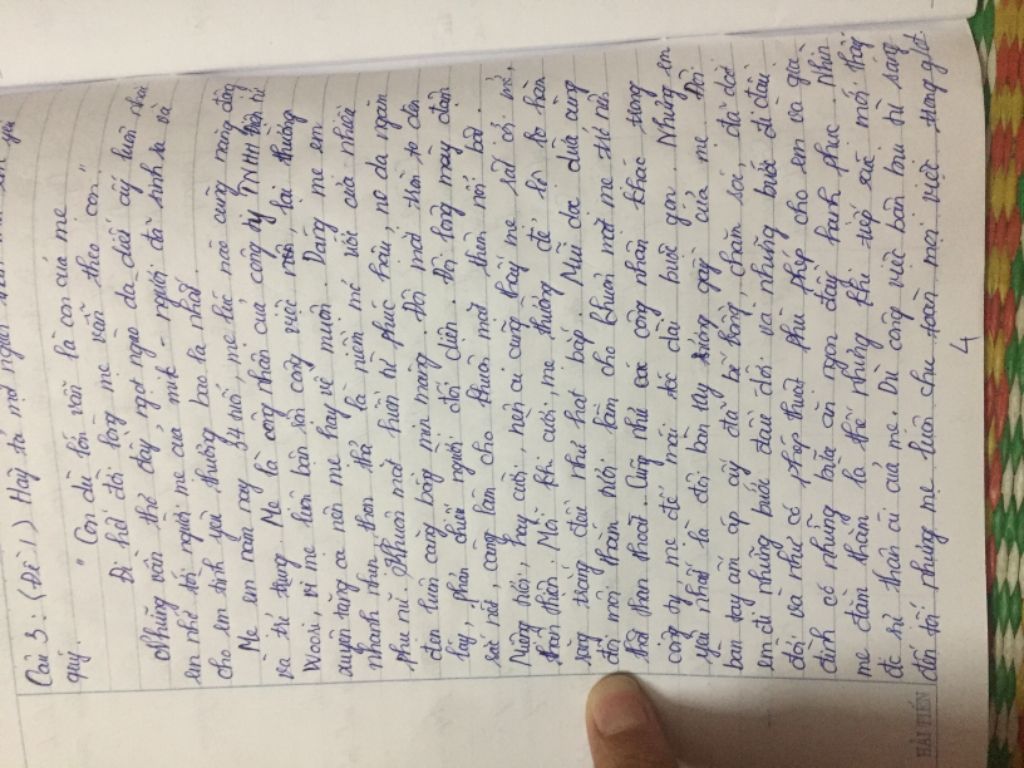 Câu 3: (Đề 1) Hãy tả một người
quý.
" Con dù lớn vẫn là con của mẹ
Đi hết đời lòng mẹ vẫn theo con "
Những vần thơ đầy ngọt ngào da diết ấy luôn
em nhớ tới người mẹ của mình - người đã sinh ra và
cho em tình yêu thương bao la nhất.
Mẹ em năm nay 34 tuổi, mẹ lúc nào cũng năng động
và trẻ trung. Mẹ là công nhân của công ty TNHH
Woosi, vì mẹ luôn bận rộn công việc, lại thường
xuyên tăng ca nên mẹ hay về muộn. Dáng mẹ em
nhanh nhẹn, thon thả là niềm mơ ước của nhiều
phụ nữ. Khuôn mặt hiền từ phúc hậu, nó da ngăm
đen luôn căng bóng mịn màng. Đôi mắt thì to đen
láy, phản chiếu người đối diện. Đôi lông mày đậm
sắc nét, càng làm cho khuôn mặt thêm nổi bật.
Nường nói, hay cười, nên ai cũng thấy mẹ rất cởi mở,
thân thiện. Mỗi khi cười, mẹ thường để lộ ra hàm
răng trắng đều như hạt bắp. Mũi dọc dừa cùng
đôi môi thắm tươi làm cho khuôn mặt mẹ trẻ nên
hút thần thoát. Cũng như các công nhân khác trong
công ty, mẹ để mái tóc dài buộc gọn. Nhưng em
yêu nhất là đôi bàn tay xương gầy của mẹ. Đôi
bàn tay ấm áp ấy đã bế bồng, chăm sóc, đã dắt
em đi những bước đầu đời và những bước đi đầu
đời và như có phép thuật phù phép cho em và gia
đình có những bữa ăn ngon đầy hạnh phúc. Nhìn
mẹ đàn hằng là thế nhưng khi tiếp xúc mới thấy
đc sự thân ái của mẹ. Dù công việc bận bịu từ sáng
đến tối nhưng mẹ luôn chu toàn mọi việc trong gđ.
4
HẢI TIẾN